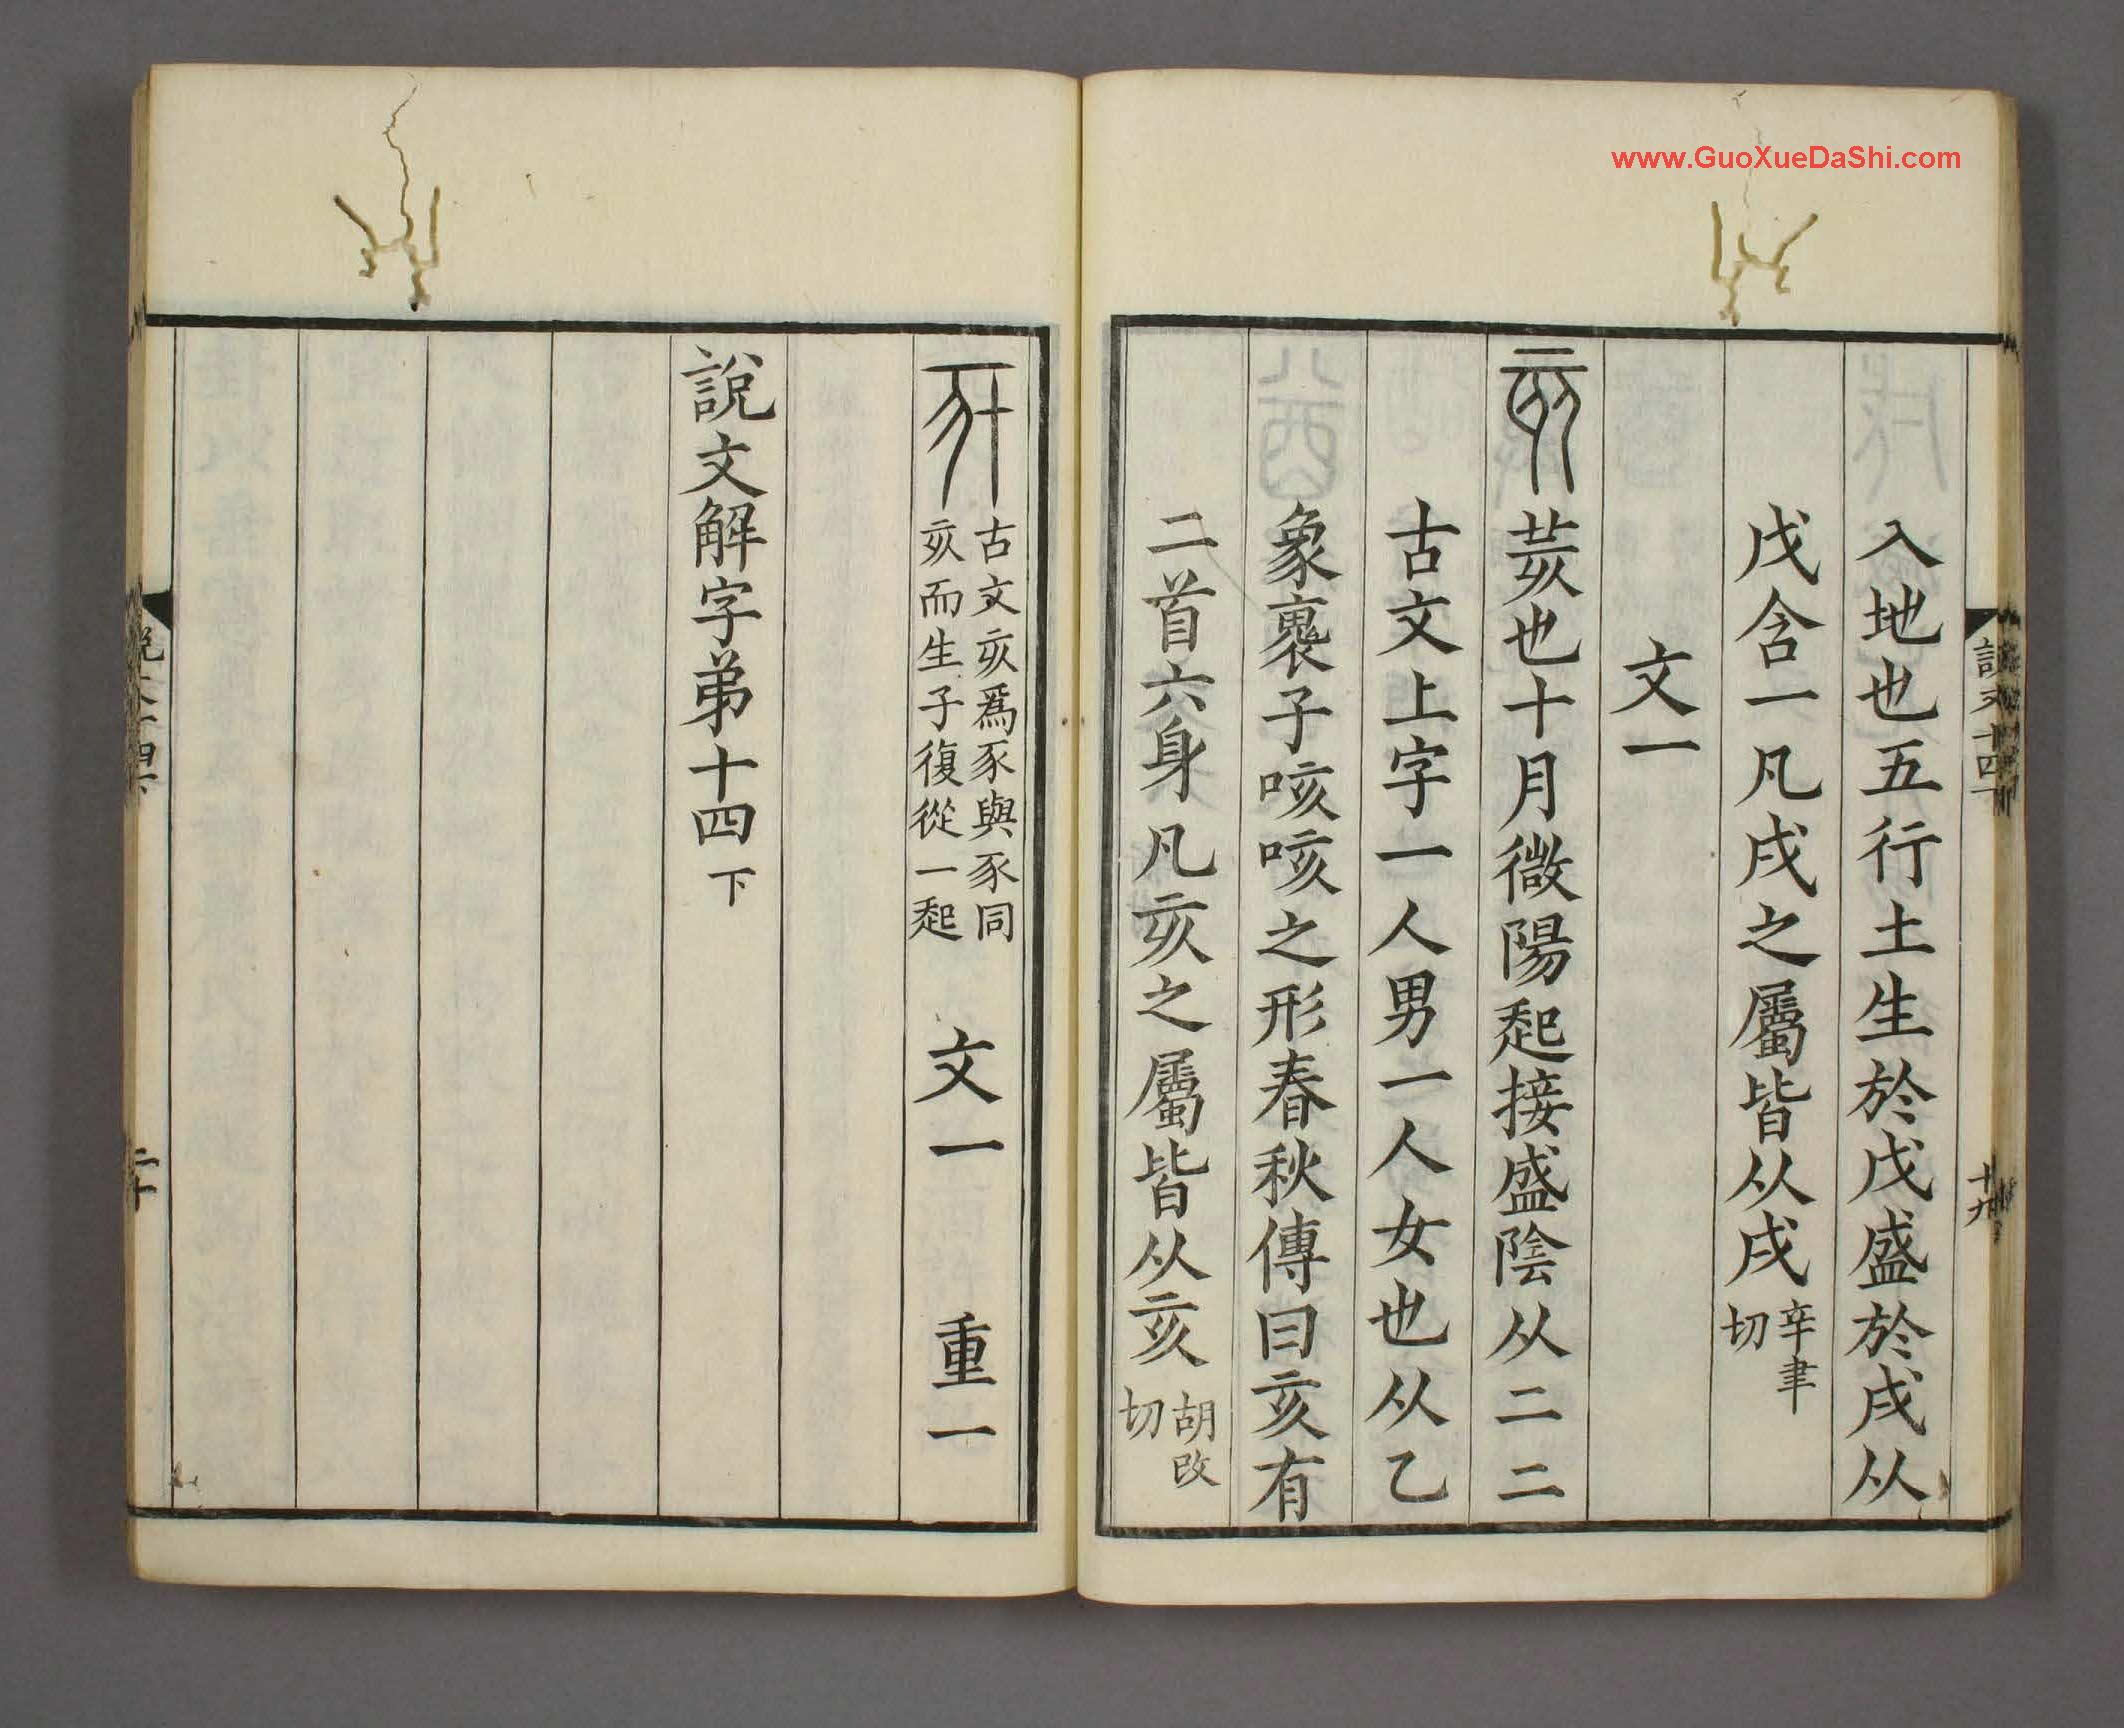 www.GuoXueDaShi.com
入地也五行土生於戊盛於戌从
戊含一凡戌之屬皆从戌辛聿切
文一
亥荄也十月微陽起接盛陰从二二
古文上字一人男一人女也从乙
象褢子咳咳之形春秋傳曰亥有
二首六身凡亥之屬皆从亥胡改切
古文亥爲豕與豕同
亥而生子復從一起
文一 重一
說文解字弟十四下
說文十四下
十九
二十